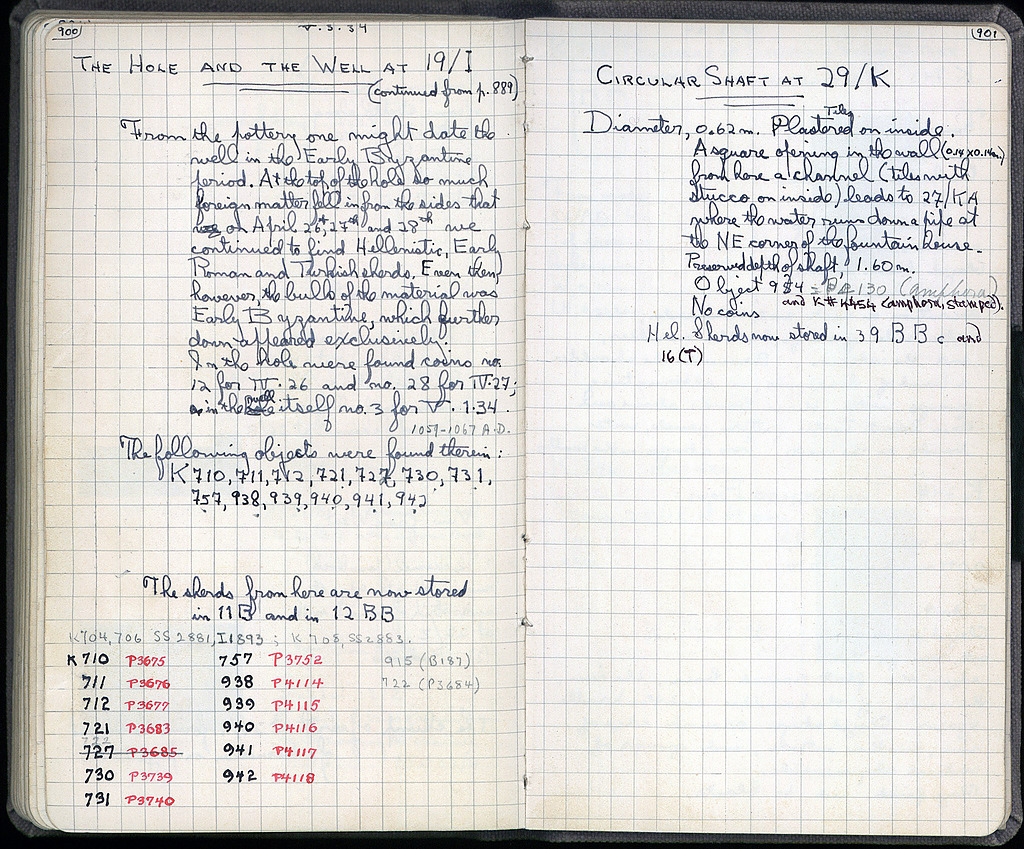 900
V.3.34
THE HOLE AND THE WELL AT 19/I
(continued from p. 889)
From the pottery one might date the
well in the Early Byzantine
period. At the top of the hole so much
foreign matter fell in from the sides that
on April 26th, 27th and 28th we
continued to find Hellenistic, Early
Roman and Turkish sherds. Even then,
however, the bulk of the material was
Early Byzantine, which further
down appeared exclusively.
In the hole were found coins no.
12 for IV.26 and no. 28 for IV.27;
in the well itself no. 3 for V.1.34.
1059-1067 A.D.
The following objects were found therein:
K 710, 711, 712, 721, 727, 730, 731,
757, 938, 939, 940, 941, 942
The sherds from here are now stored
in 11 B and in 12 BB
K704, 706 SS2881, I1893; K 708, SS2883.
K 710 P3675 757 P3752 915 (B187)
711 P3676 938 P4114 722 (P3684)
712 P3677 939 P4115
721 P3683 940 P4116
722
727 P3685 941 P4117
730 P3739 942 P4118
731 P3740
901
CIRCULAR SHAFT AT 29/K
Tiles
Diameter, 0.62 m. Plastered on inside.
A square opening in the wall (0.14 x 0.14m.)
from here a channel (tiles with
stucco on inside) leads to 27/KA
where the water runs down a pipe at
the NE corner of the fountain house.
Preserved depth of shaft, 1.60 m.
Object 934 = P 4130 (Amphora)
and K# 4454 (amphora, stamped).
No coins
Hel. Sherds now stored in 39 BB and
16 (T)